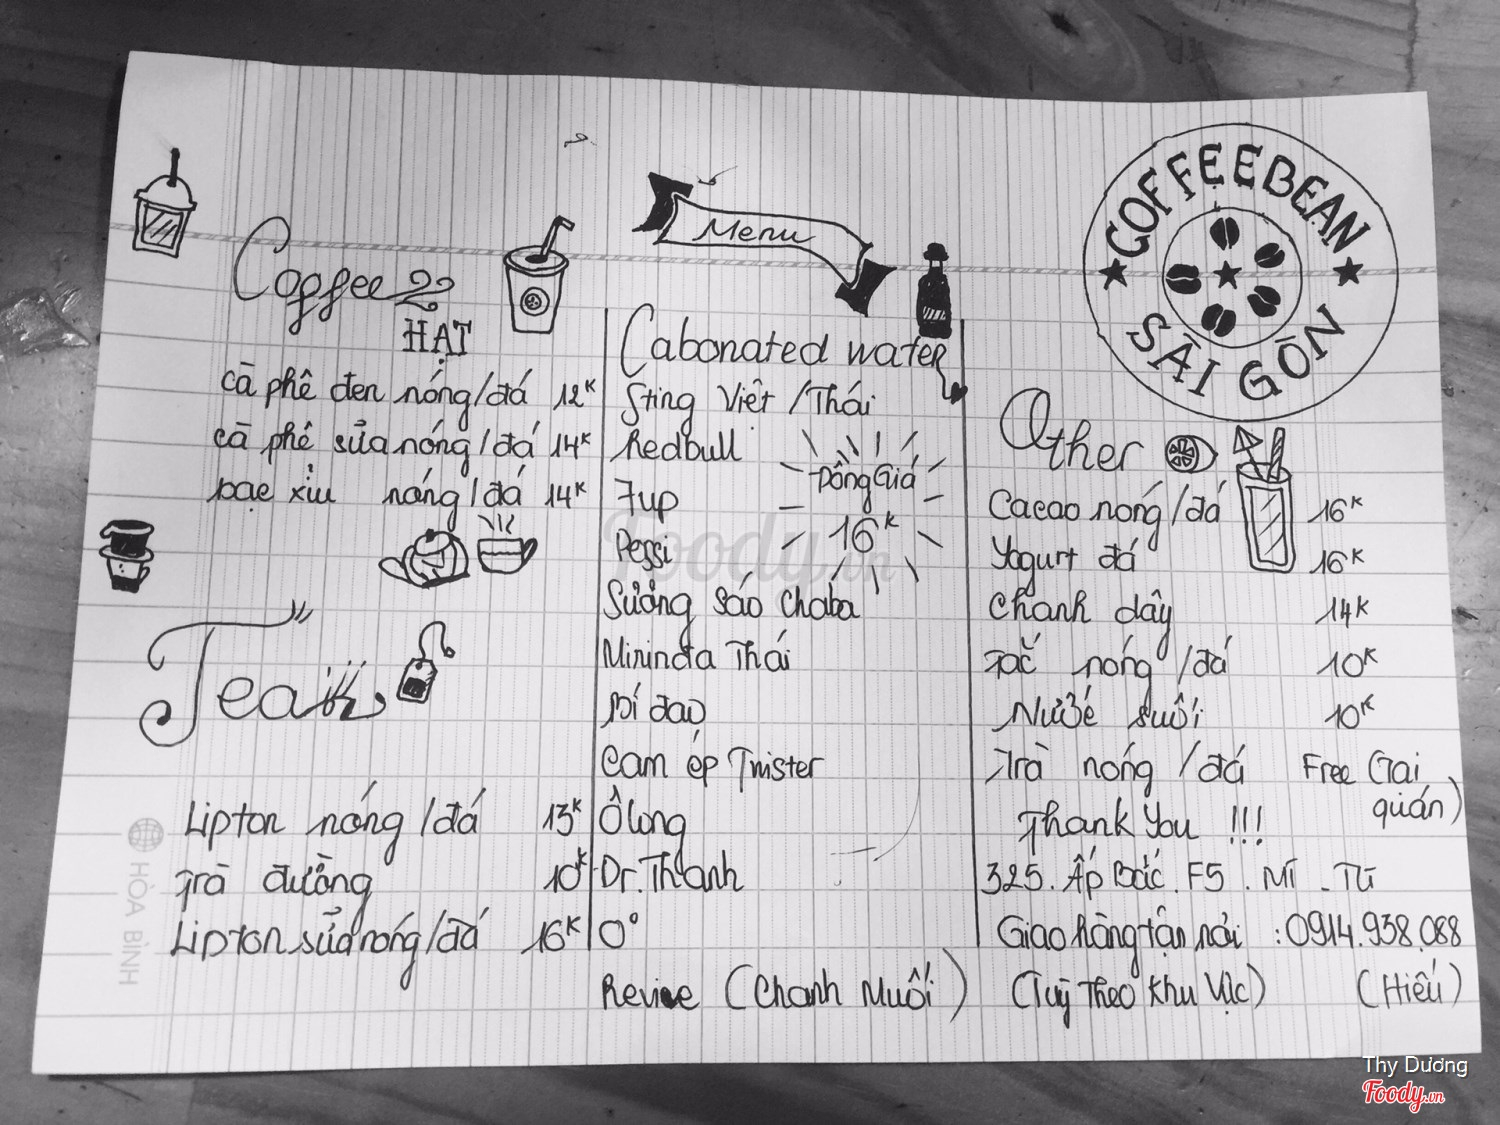 Menu
COFFEEBEAN
SÀI GÒN
Coffee
HẠT
cà phê đen nóng/đá 12K
cà phê sữa nóng/đá 14K
bạc xỉu nóng/đá 14K
Tea
Lipton nóng/đá 13K
Trà đường 10K
Lipton sữa nóng/đá 16K
Cabonated water
Sting Việt/Thái
Redbull
7up
Pessi
Sương sáo Chaba
Mirinda Thái
Bí đao
Cam ép Twister
Ô long
Dr.Thanh
0°
Revive (Chanh Muối)
Đồng Giá
16K
Other
Cacao nóng/đá 16K
Yogurt đá 16K
Chanh dây 14K
Tắc nóng/đá 10K
Nước suối 10K
Trà nóng/đá Free (Tại quán)
Thank You !!!
325. Ấp Bắc. F5. Mĩ - Th
Giao hàng tận nơi : 0914.938.088
(Tuỳ Theo Khu Vực) (Hiếu)
HÒA BÌNH
Foody.vn
Thy Dương
Foody.vn